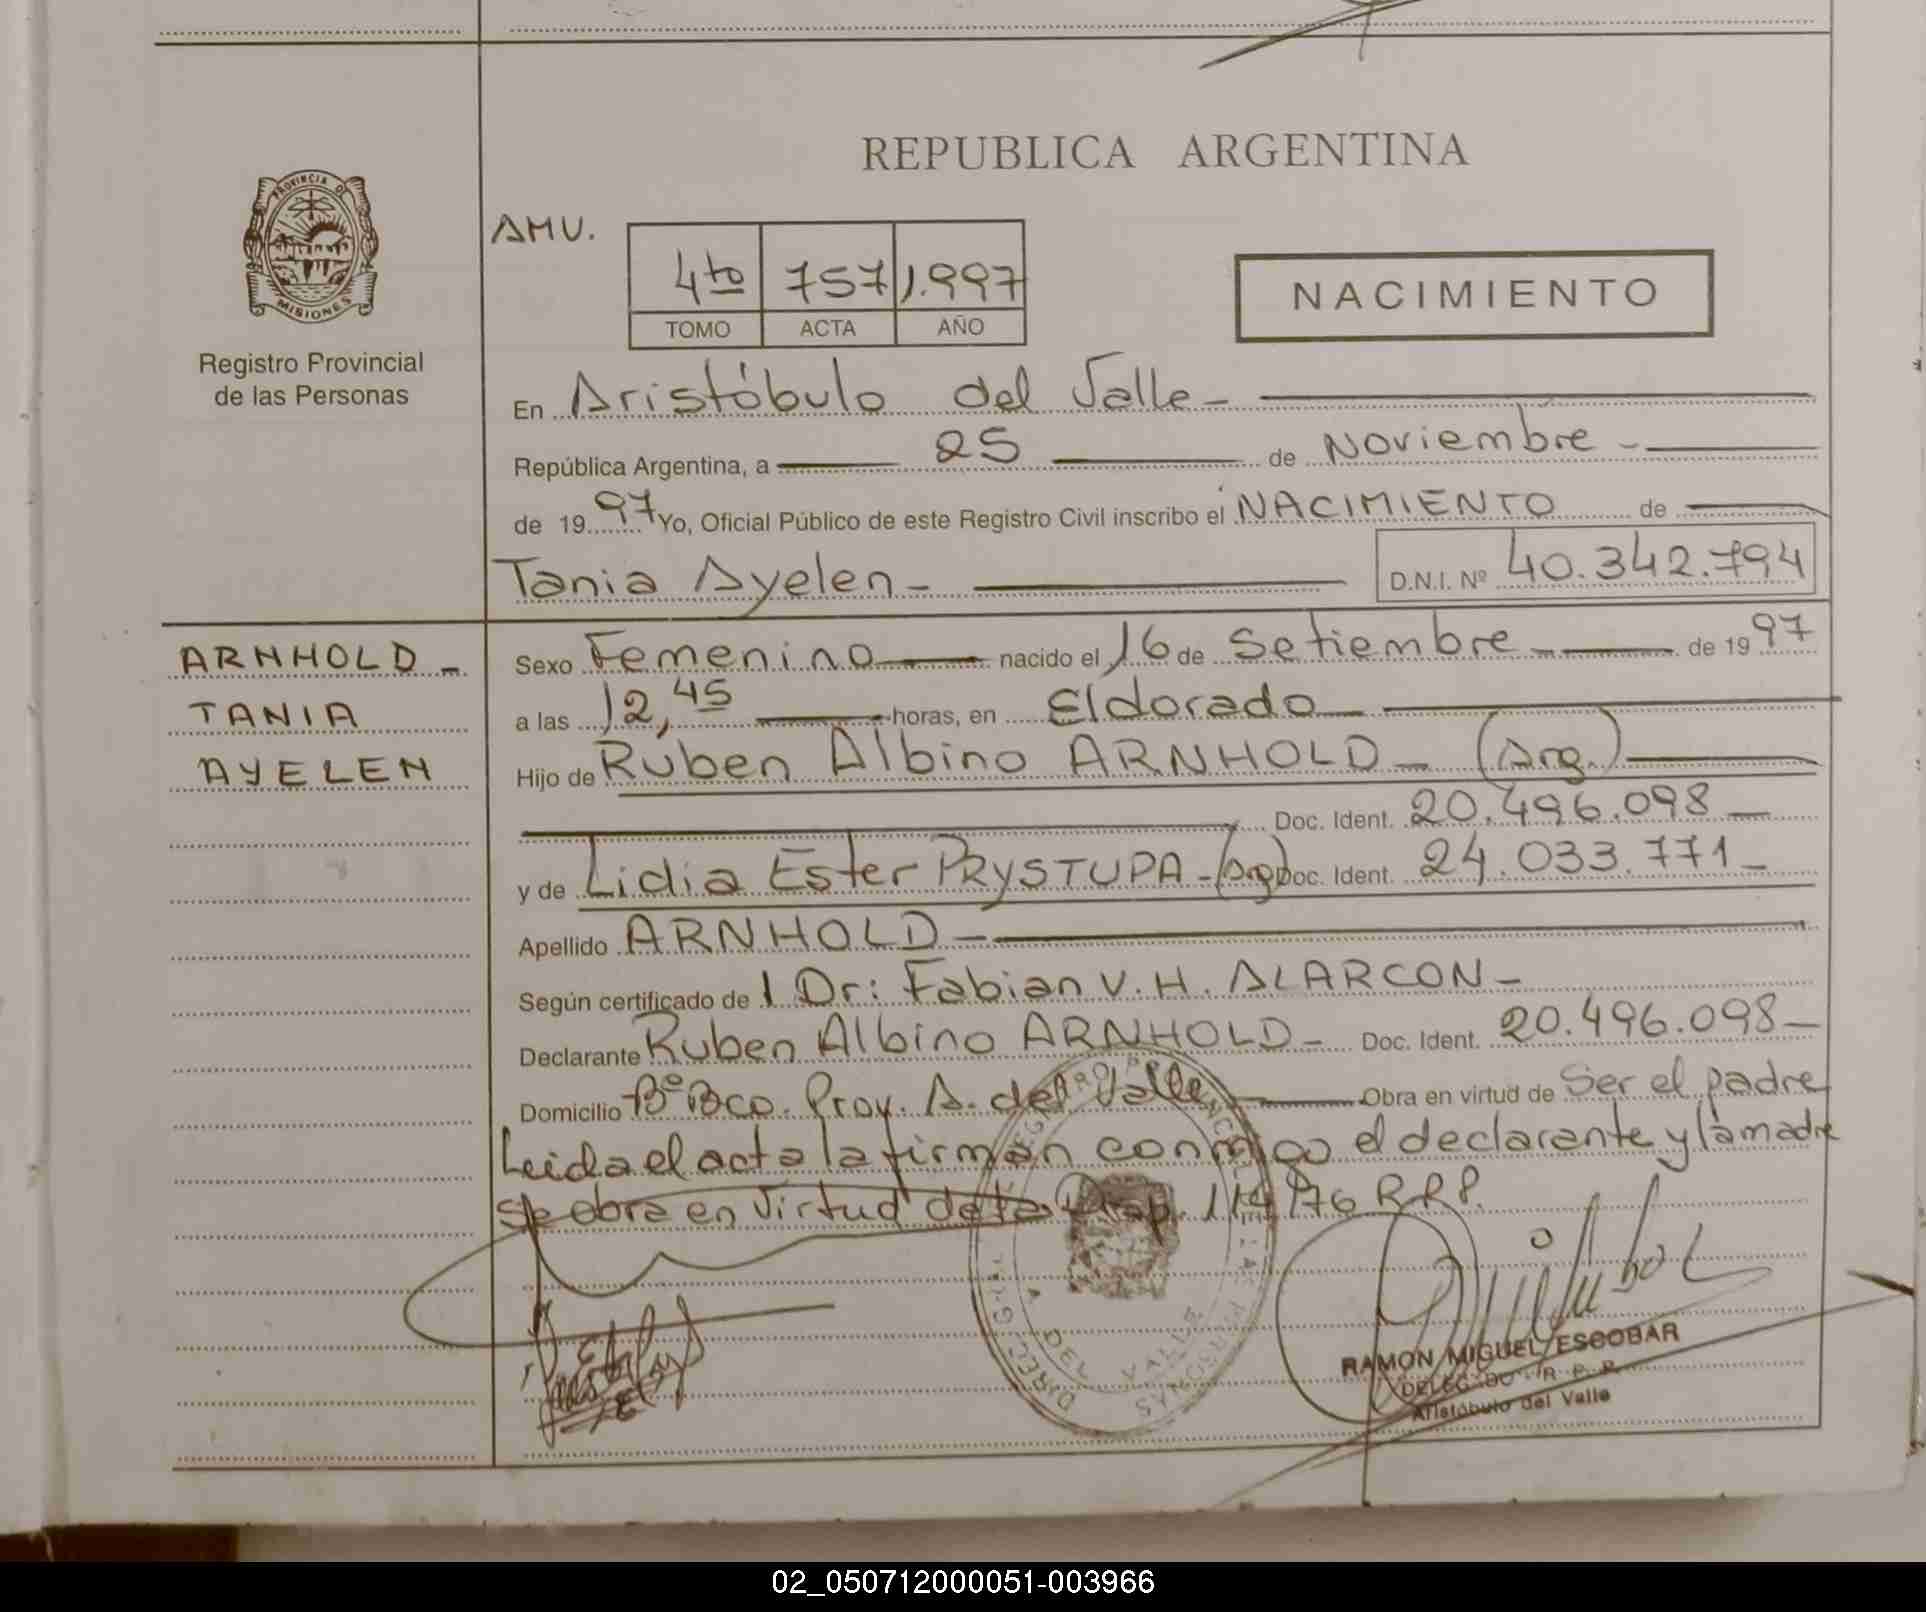 REPUBLICA ARGENTINA
PROVINCIA DE
MISIONES
Registro Provincial
de las Personas
AMU.
4to 757 1.997
TOMO ACTA AÑO
NACIMIENTO
En Aristóbulo del Valle-
República Argentina, a 25 de Noviembre -
de 1997 Yo, Oficial Público de este Registro Civil inscribo el NACIMIENTO de
Tania Ayelen- D.N.I. Nº 40.342.794
ARNHOLD -
TANIA
AYELEN
Sexo Femenino nacido el 16 de Setiembre - de 1997
a las 12,45 horas, en Eldorado
Hijo de Ruben Albino ARNHOLD - (Arg.)
Doc. Ident. 20.496.098 -
y de Lidia Ester PRYSTUPA - (Arg) Doc. Ident. 24.033.771 -
Apellido ARNHOLD -
Según certificado de l Dr: Fabian V. H. ALARCON -
Declarante Ruben Albino ARNHOLD - Doc. Ident. 20.496.098 -
Domicilio Bº Bco. Prov. A. del Valle Obra en virtud de Ser el padre
Leida el acta la firman conmigo el declarante y la madre
Se obra en virtud de la Disp. 114/76 R.R.P.
RAMON MIGUEL ESCOBAR
DELEGADO R. P. P.
Aristóbulo del Valle
02_050712000051-003966